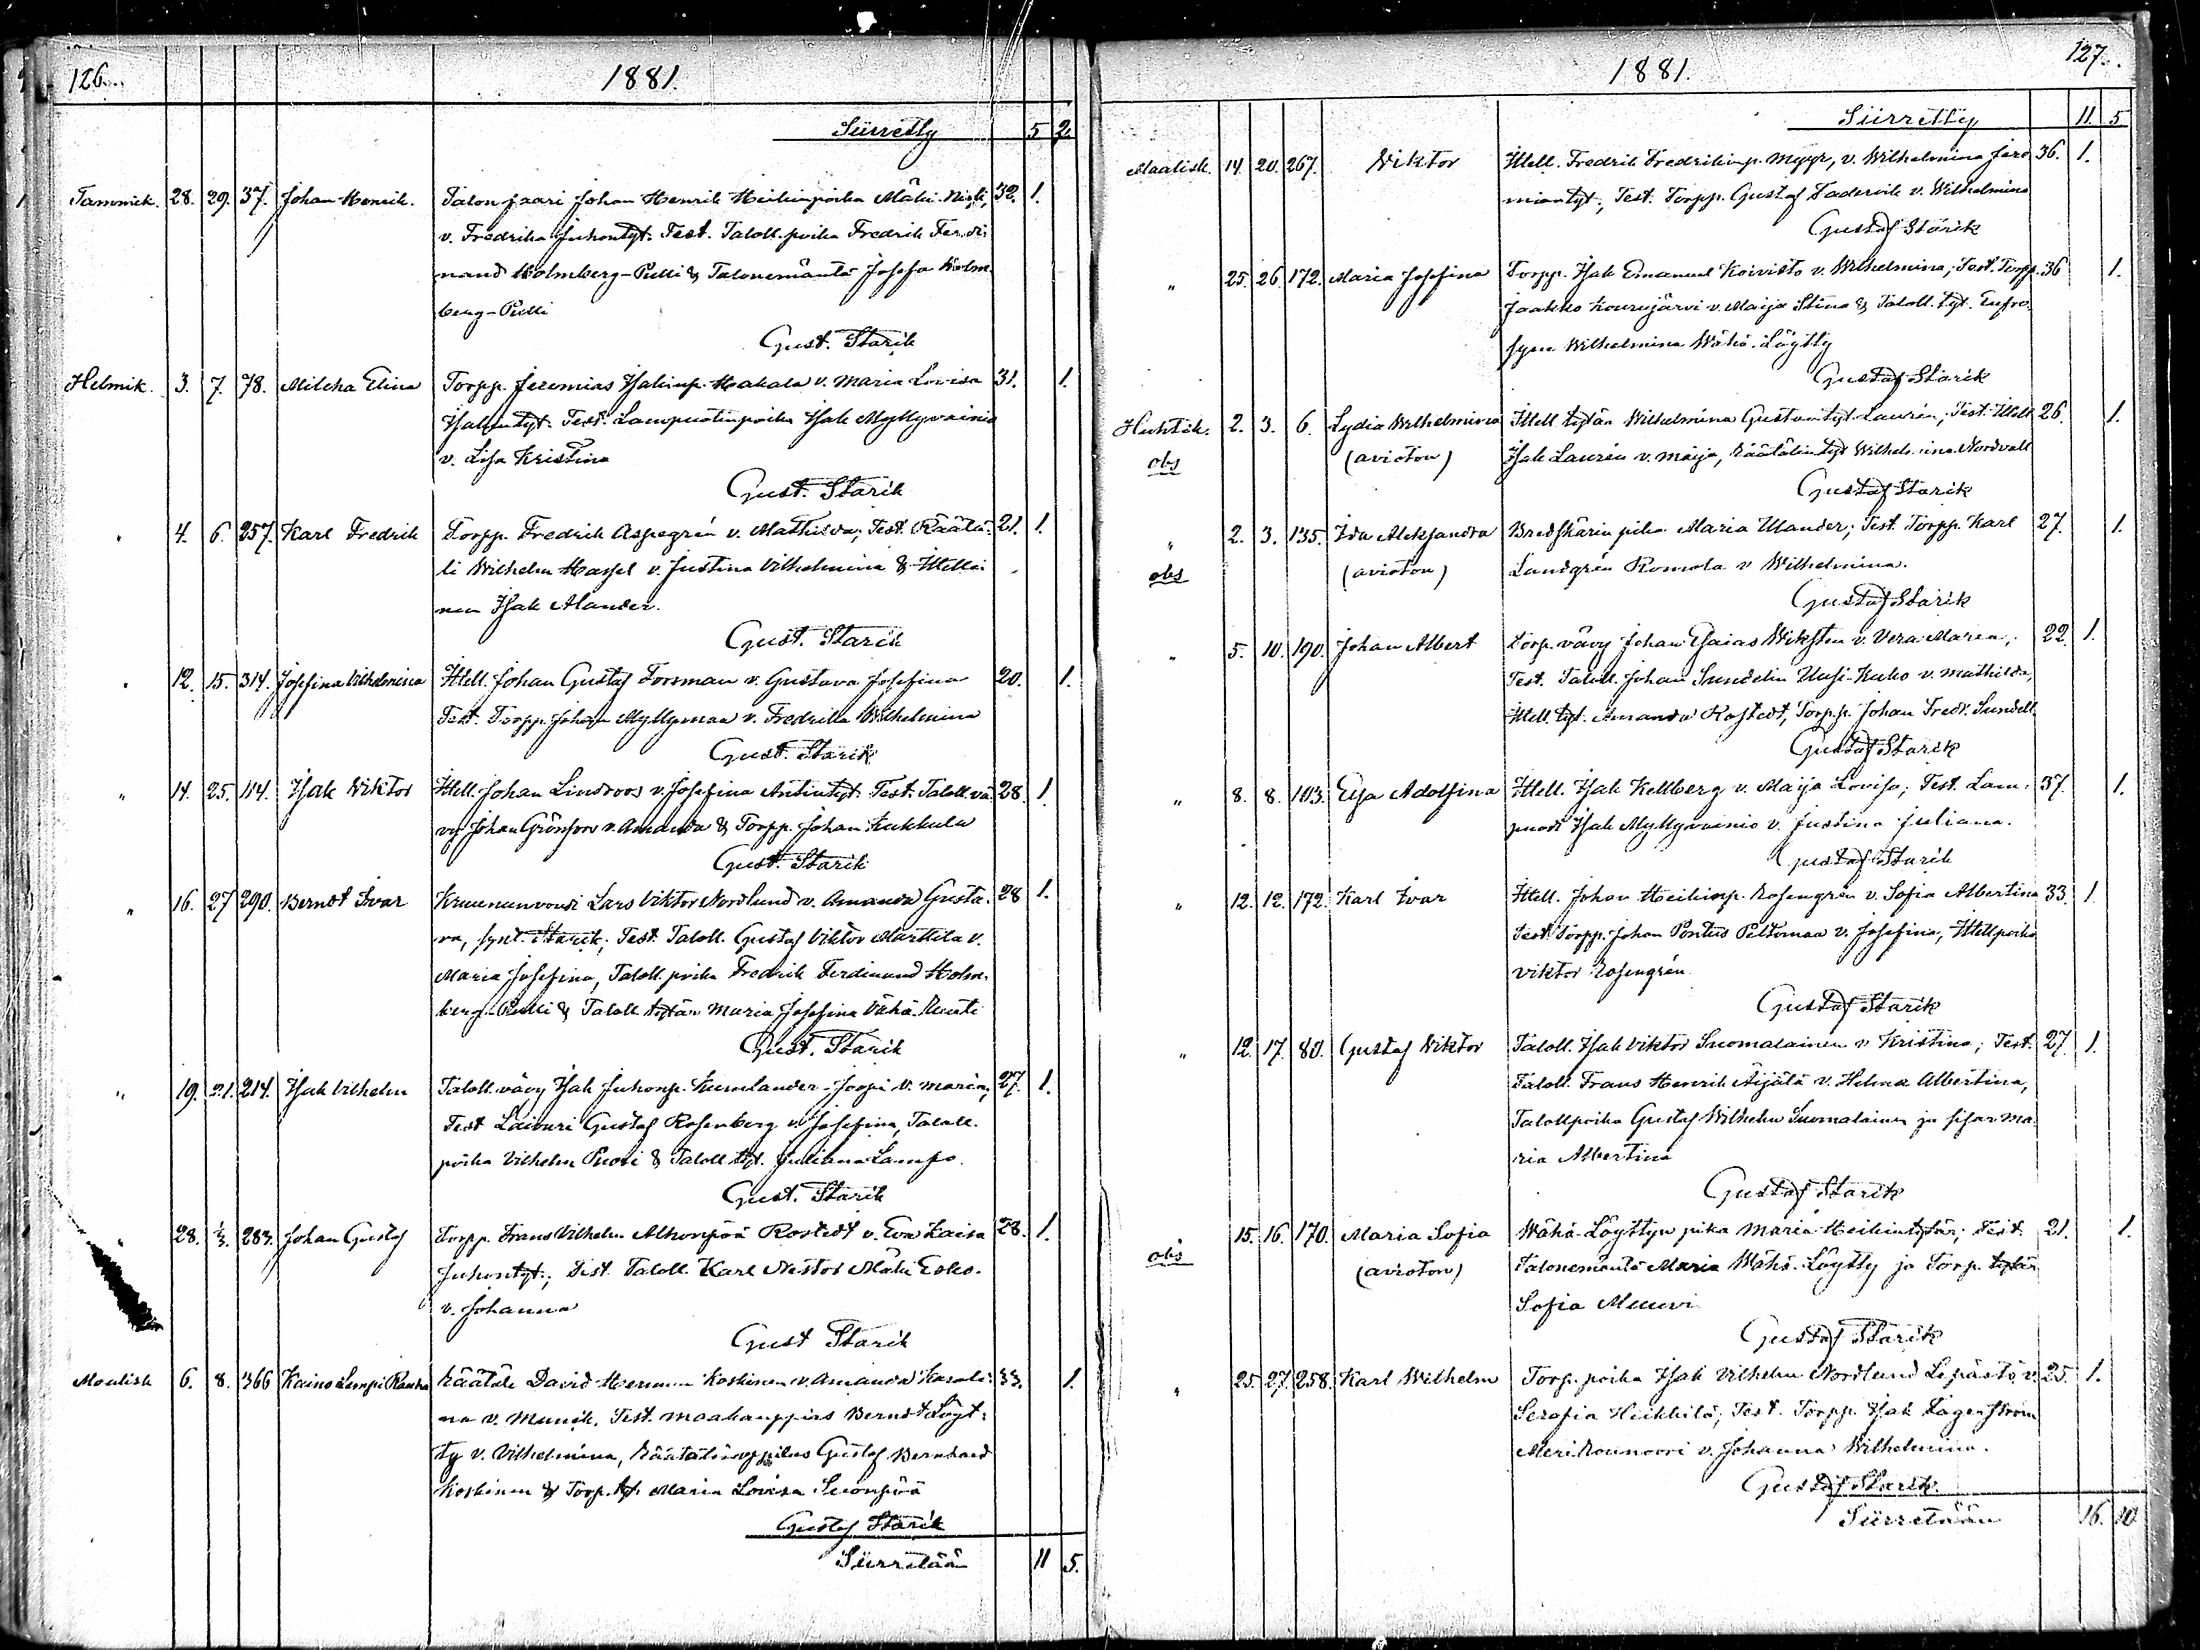 126.
1881.
Siirretty 5 2.
Tammik. 28. 29. 37. Johan Henrik. Talon jaari Johan Henrik Heikinpoika Mäki- 32. 1.
v. Fredrika Juhontyt. Test. Taloll. poika Fredrik Ferdi-
nand Holmberg-Pulli & Talonemäntä Josefa Holm-
berg-Pulli
Gust. Starik
Helmik. 3. 7. 78. Milcha Elina Torpp. Jeremias Isakinp. Hakala v. Maria Lovisa 31. 1.
Isakintyt. Test. Lampuotinpoika Isak Myllyvainio
v. Lisa Kristina
Gust. Starik
" 4. 6. 257. Karl Fredrik Torpp. Fredrik Aspegrén v. Mathilda; Test. Räätä- 21. 1.
li Wilhelm Hassel v. Justina Vilhelmina & Itelli-
nen Isak Alander.
Gust. Starik
" 12. 15. 314. Josefina Vilhelmina Itell. Johan Gustaf Forsman v. Gustava Josefina 20. 1.
Test. Torpp. Johan Myllymaa v. Fredrika Wilhelmina
Gust. Starik
" 14. 25. 114. Isak Wiktor Itell. Johan Lindroos v. Josefina Antintyt. Test. Taloll. vä- 28. 1.
vy Johan Grönfors v. Amanda & Torpp. Johan Kukkula
Gust. Starik
" 16. 27 290. Berndt Ivar Kruununvouti Lars Viktor Nordlund v. Amanda Gusta- 28 1.
va, synt. Starik; Test. Taloll. Gustaf Viktor Marttila v.
Maria Josefina, Taloll. poika Fredrik Ferdinand Holm-
berg-Pulli & Taloll. tytär Maria Josefina Vähä-
Gust. Starik
" 19. 21. 214. Isak Vilhelm Taloll. vävy Isak Juhonp. Kumlander-Jospi v. Maria; 27. 1.
Test Laivuri Gustaf Rosenberg v. Josefina, Taloll.
poika Vilhelm Puosi & Taloll. tyt. Juliana Lampo.
Gust. Starik
" 28. 1/3. 283. Johan Gustaf Torpp. Frans Vilhelm Alhonpää Rostedt v. Eva Kaisa 28. 1.
Juhontyt.; Test. Taloll. Karl Nestor Mäki Esko.
v. Johanna
Gust Starik
Maalisk 6. 8. 366 Kaino Lempi Rauha Räätäli David Herman Koskinen v. Amanda Karoli- 33. 1.
na v. Munck. Test. maakauppias Berndt Löyt-
ty v. Vilhelmina, Räätälinoppilas Gustaf Bernhard
Koskinen & Torp. tyt. Maria Lovisa Suonpää
Gustaf Starik
Siirretään 11 5.
127.
1881.
Siirretty 11. 5
Maalisk. 14. 20. 267. Wiktor Itell. Fredrik Fredrikinp. Myyr, v. Wilhelmina Jere- 36. 1.
miantyt.; Test. Torpp. Gustaf Sadervik v. Wilhelmina
Gustaf Starik
" 25. 26. 172. Maria Josefina Torpp. Isak Emanuel Koivisto v. Wilhelmina; Test. Torpp. 36 1.
Jaakko Kourujärvi v. Maija Stina & Taloll. tyt. Eufro-
syne Wilhelmina Wähä-Löytty
Gustaf Starik
Huhtik. 2. 3. 6. Lydia Wilhelmina Itell. tytär Wilhelmina Gustavintyt. Laurén; Test. Itell 26. 1.
obs (avioton) Isak Laurén v. Maija, Räätälin tyt Wilhelmina Nordvall
Gustaf Starik
" 2. 3. 135. Ida Aleksandra Bredskärin pika Maria Ulander; Test. Torpp. Karl 27. 1.
obs (avioton) Landgrén Romola v Wilhelmina.
Gustaf Starik
" 5. 10. 190. Johan Albert Torp. vävy Johan Esaias Wiksten v. Vera Maria; 22. 1.
Test. Taloll. Johan Sundelin Uusi-Kuko v. Mathilda,
Itell. tyt. Amanda Rostedt, Torp.p. Johan Fredr. Sundell.
Gustaf Starik
" 8. 8. 103. Elsa Adolfina Itell. Isak Kellberg v. Maija Lovisa; Test. Lam- 37. 1.
puoti Isak Myllyvainio v. Justina Juliana.
Gustaf Starik
" 12. 12. 172. Karl Ivar Itell. Johan Heikinp. Rosengrén v. Sofia Albertina 33. 1.
Test. Torpp. Johan Pontus Peltomaa v. Josefina, Itell poika
Viktor Rosengrén
Gustaf Starik
" 12. 17. 80. Gustaf Wiktor Taloll. Isak Viktor Suomalainen v Kristina; Test. 27. 1.
Taloll. Frans Henrik Äijälä v. Helena Albertina,
Talollpoika Gustaf Wilhelm Suomalainen ja sisar Ma-
ria Albertina
Gustaf Starik
" 15. 16. 170. Maria Sofia Wähä-Löyttyn pika Maria Heikintytär; Test. 21. 1.
obs (avioton) Talonemäntä Maria Wähä-Löytty ja Torp. tytär
Sofia Meuvi
Gustaf Starik
" 25. 27. 258. Karl Wilhelm Torp. poika Isak Vilhelm Nordlund Lepistö, v. 25. 1.
Serafia Heikkilä; Test. Torpp. Isak Lagerström
Merikounoori v. Johanna Wilhelmina.
Gustaf Starik.
Siirretään 16. 10